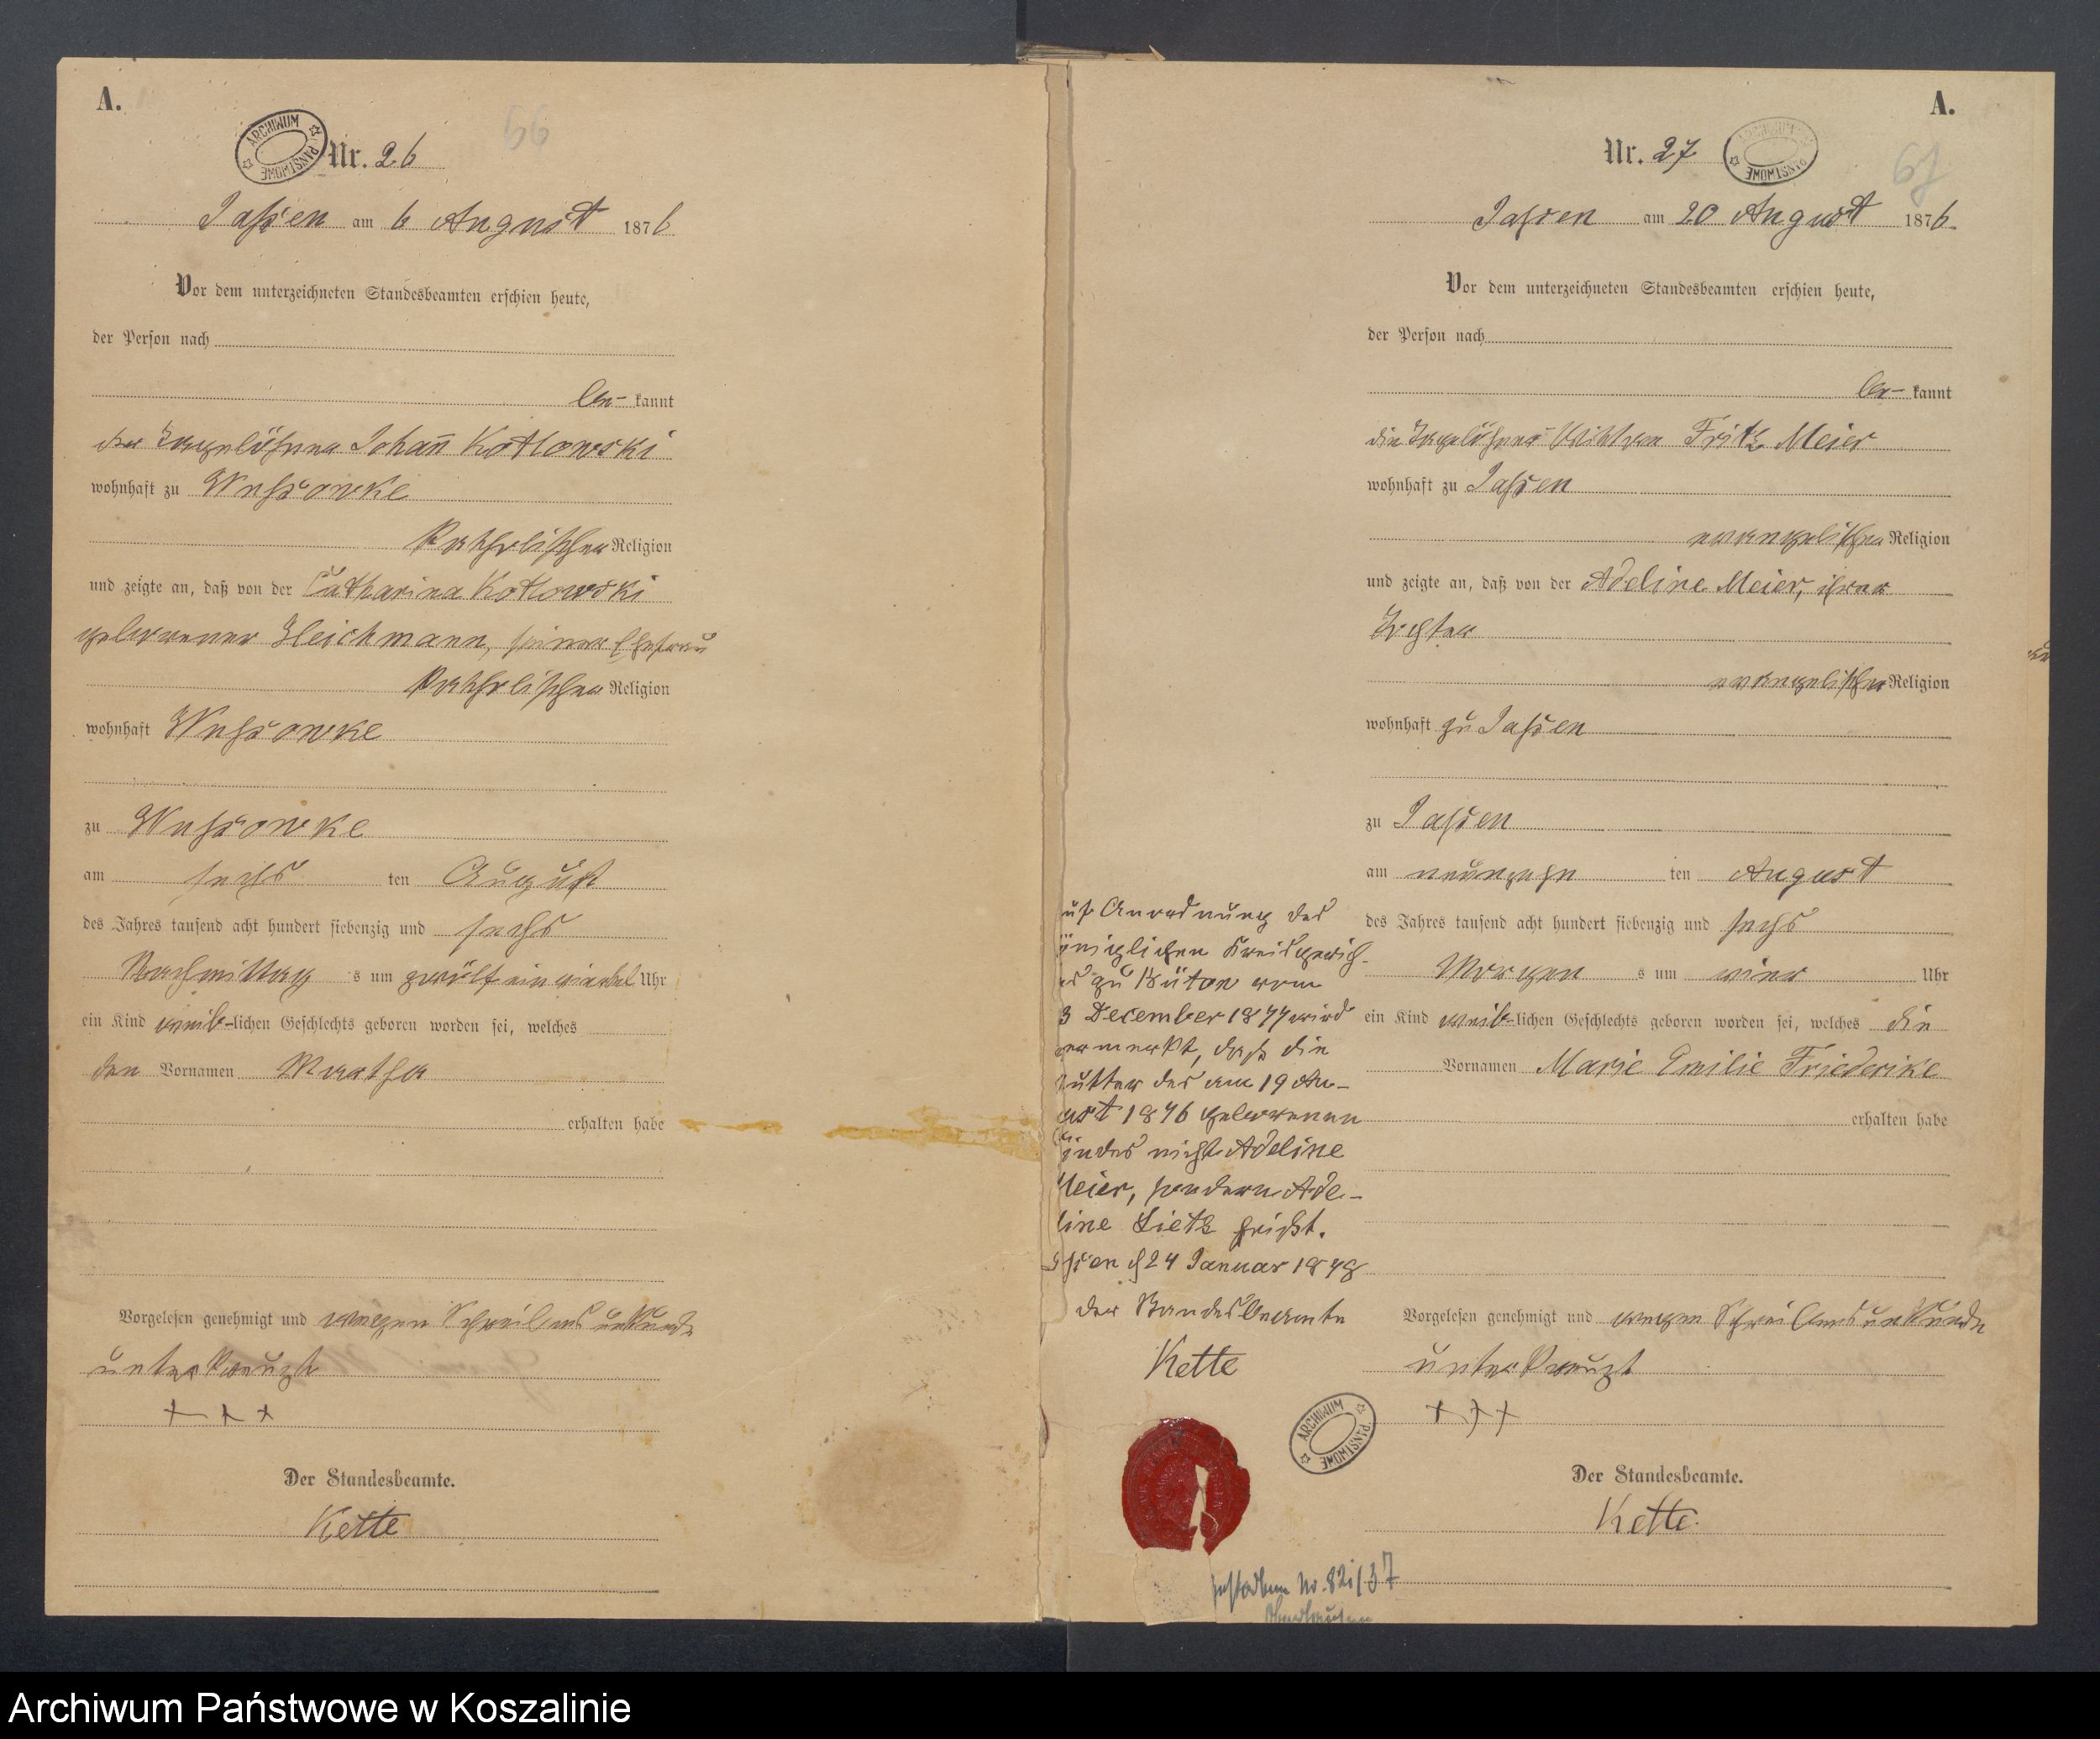 A.
ARCHIWUM PAŃSTWOWE
66
Nr. 26
Jassen am 6 August 1876
Vor dem unterzeichneten Standesbeamten erschien heute,
der Person nach
be- kannt
der Tagelöhner Johann Kotlowski
wohnhaft zu Wussowke
katholischer Religion
und zeigte an, daß von der Catharina Kotlowski
geborenen Gleichmann, seiner Ehefrau
katholischer Religion
wohnhaft Wussowke
zu Wussowke
am sechs ten August
des Jahres tausend acht hundert siebenzig und sechs
Nachmittag s um zwölf ein viertel Uhr
ein Kind weib-lichen Geschlechts geboren worden sei, welches
den Vornamen Martha
erhalten habe
Vorgelesen genehmigt und wegen Schreibensunkunde
unterkreuzt
+ + +
Der Standesbeamte.
Kette
A.
Nr. 27
ARCHIWUM PAŃSTWOWE
67
Jassen am 20 August 1876
Vor dem unterzeichneten Standesbeamten erschien heute,
der Person nach
be- kannt
die Tagelöhner Wittwe Fritz Meier
wohnhaft zu Jassen
evangelischer Religion
und zeigte an, daß von der Adeline Meier, ihrer
Tochter
evangelischer Religion
wohnhaft zu Jassen
zu Jassen
am neunzehn ten August
des Jahres tausend acht hundert siebenzig und sechs
Morgen s um vier Uhr
ein Kind weib-lichen Geschlechts geboren worden sei, welches die
Vornamen Marie Emilie Friederike
erhalten habe
Vorgelesen genehmigt und wegen Schreibensunkunde
unterkreuzt
+ + +
Der Standesbeamte.
Kette.
uf Anordnung des
öniglichen Kreisgerich-
es zu Bütow vom
3 December 1877 wird
vermerkt, daß die
utter des am 19 Au-
gust 1876 geborenen
Kindes nicht Adeline
Meier, sondern Ade-
line Lietz heißt.
ssen d 24 Januar 1878
der Standesbeamte
Kette
ARCHIWUM PAŃSTWOWE
gestorben Nr. 82i/37
Archiwum Państwowe w Koszalinie